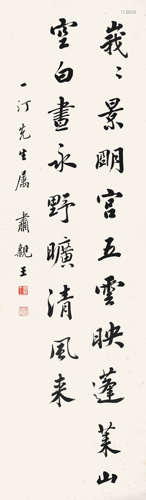 峩〻景明宫五雲映蓬莱山
空白晝永野曠清風来
一汀先生属 肅親王